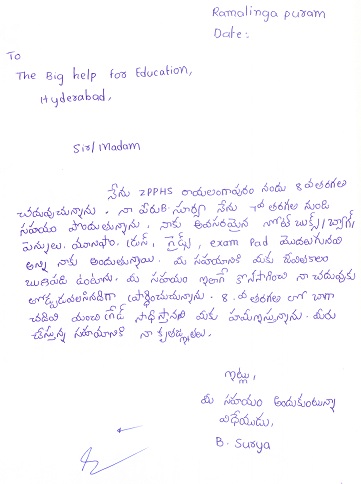 Ramalinga puram
Date:
To
The Big help for Education,
Hyderabad,
Sir/Madam
నేను ZPPHS రాయలింగాపురం నందు 8వ తరగతి
చదువుచున్నాను. నా పేరు B. సూర్యా నేను 7వ తరగతి నుండి
సహాయం పొందుతున్నాను. నాకు అవసరమైన నోట్ బుక్స్, బ్యాగ్,
పెన్నులు, యూనిఫాం, డ్రస్, గైడ్స్, exam Pad మొదలగునవి
అన్ని నాకు అందుతున్నాయి. మీ సహాయానికి మీకు జీవితకాలం
ఋణపడి ఉంటాను. మీ సహాయం ఇలాగే కొనసాగించి నా చదువుకు
తోడ్పడవలసినదిగా ప్రార్థించుచున్నాను. 8వ తరగతి లో బాగా
చదివి మంచి గ్రేడ్ సాధిస్తానని మీకు హామీఇస్తున్నాను. మీరు
చేస్తున్న సహాయానికి నా కృతజ్ఞతలు.
ఇట్లు,
మీ సహాయం అందుకుంటున్న
విధేయుడు,
B. Surya